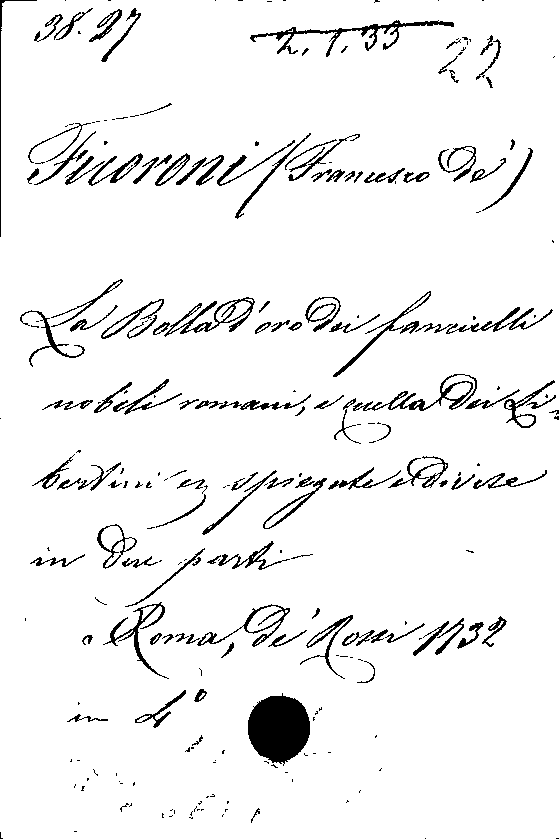 38.27 2.1.33 22
Ficoroni (Francesco de')
La Bolla d'oro dei fanciulli
nobili romani, e quella dei Li-
bertini ez spiegate e divise
in due parti
Roma, de' Rossi 1732
in 4°